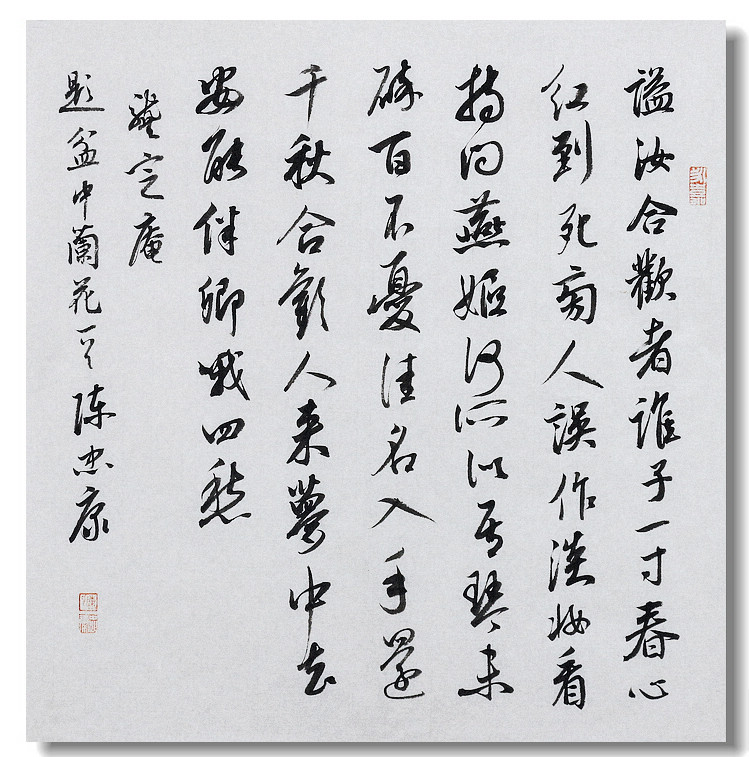 謚汝合歡者誰子一寸春心
紅到死旁人誤作淡妝看
持问燕姬何所以琴未
碎百不憂佳名入手還
千秋合歡人來夢中去
安能伴卿哦四愁
龔定庵
題盆中蘭花一首 陈忠康